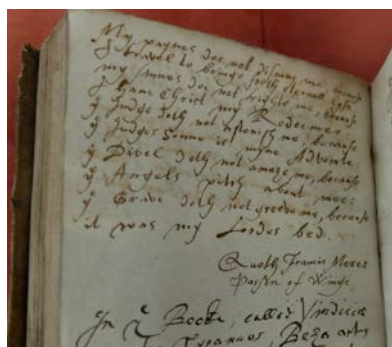 My paynes doe not dismay me, because
I travel to bringe forth eternall lyfe.
my sinnes doe not fright me, because
I haue Christ my Redeemer.
yͤ Judge doth not astonish me, because
yͤ Judges sonne is myne Advocate.
yͤ Divel doth not amaze me, because
yͤ Angels pitch about mee:
yͤ Grave doth not greeve me, because
it was my Lordes bed.
Quoth Francis Meres
Parson of Winge.
In yͤ Booke, called Vindiciæ
Tyrannos, Beza